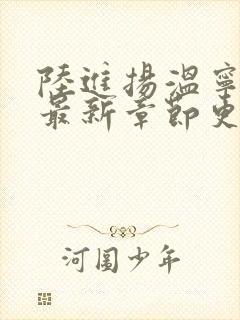 陸進揚溫寧
最新章節更
河圖少年